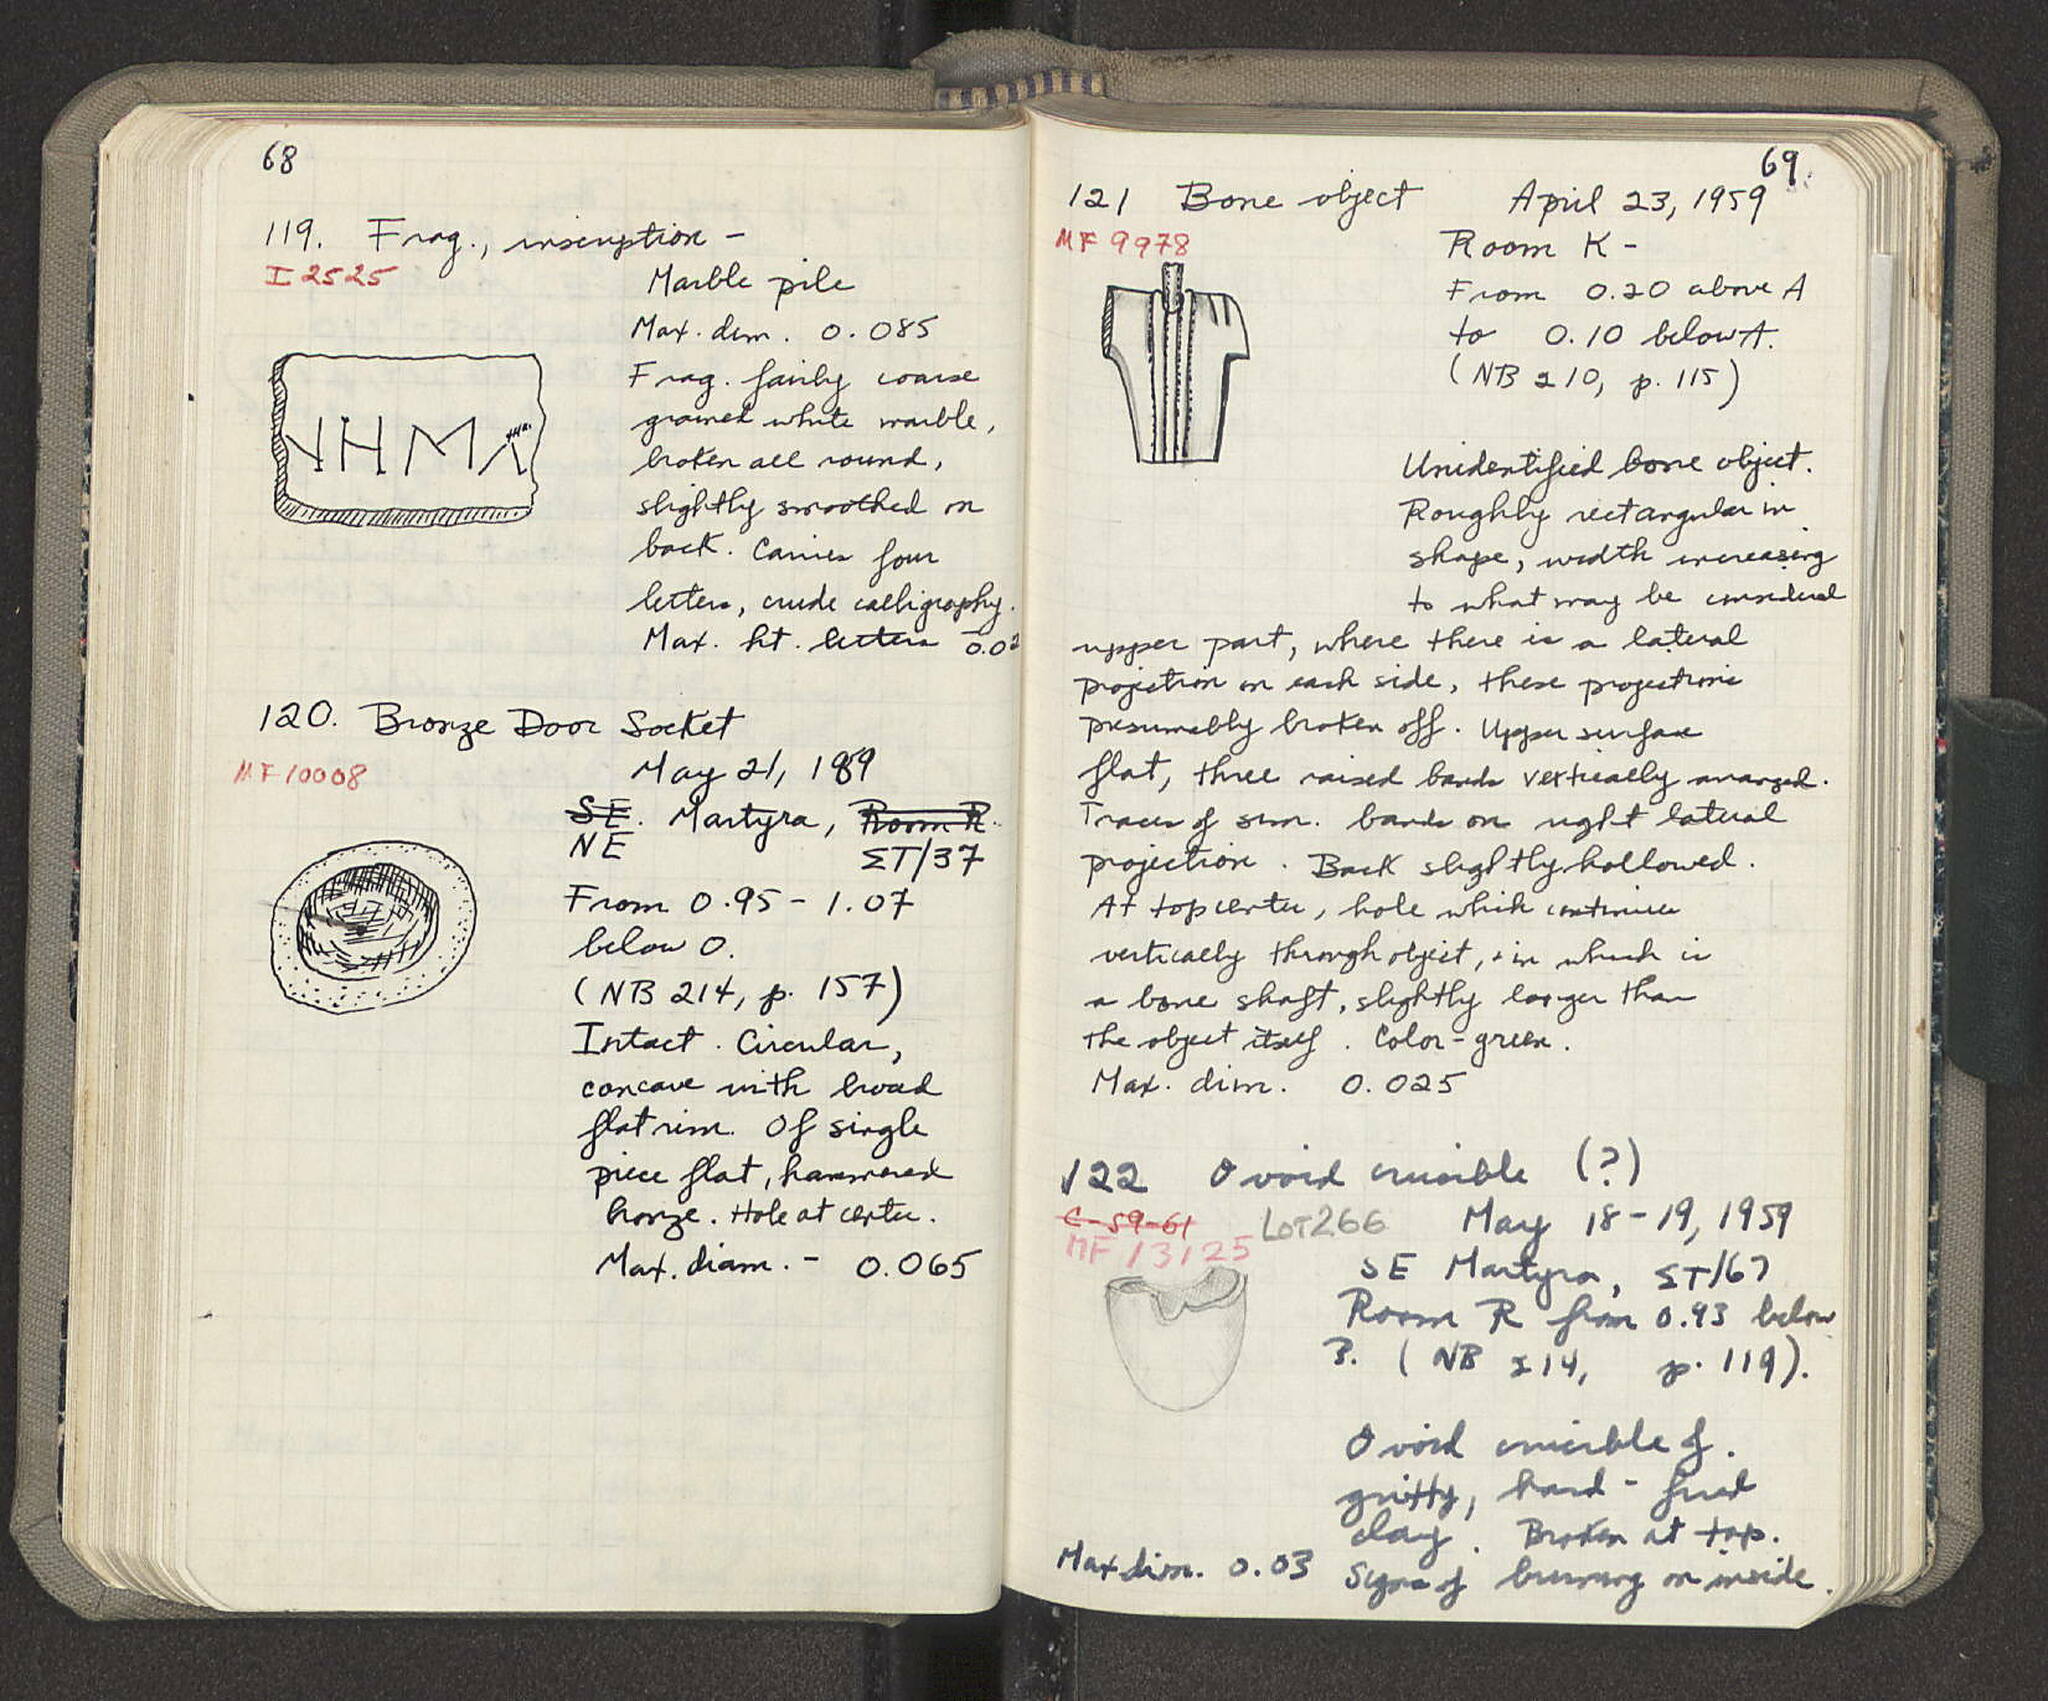 68
119. Frag., inscription -
I 2525
Marble pile
Max. dim. 0.085
Frag. fairly coarse
grained white marble,
broken all round,
slightly smoothed on
back. Carries four
letters, crude calligraphy.
Max. ht. letters 0.02
ΝΗΜΑ
120. Bronze Door Socket
MF 10008
May 21, 1959
SE. Martyra, Room R.
NE ΣΤ/37
From 0.95 - 1.07
below 0.
(NB 214, p. 157)
Intact. Circular,
concave with broad
flat rim. Of single
piece flat, hammered
bronze. Hole at center.
Max. diam. - 0.065
69
121 Bone object April 23, 1959
MF 9978
Room K -
From 0.20 above A
to 0.10 below A.
(NB 210, p. 115)
Unidentified bone object.
Roughly rectangular in
shape, width increasing
to what may be considered
upper part, where there is a lateral
projection on each side, these projections
presumably broken off. Upper surface
flat, three raised bands vertically arranged.
Traces of sim. bands on right lateral
projection. Back slightly hollowed.
At top center, hole which continues
vertically through object, + in which is
a bone shaft, slightly longer than
the object itself. Color - green.
Max. dim. 0.025
122 Ovoid crucible (?)
C-59-61 LOT 266 May 18-19, 1959
MF 13125
SE Martyra, ΣΤ/67
Room R from 0.93 below
3. (NB 214, p. 119).
Ovoid crucible of
gritty, hard-fired
clay. Broken at top.
Max dim. 0.03 Signs of burning on inside.